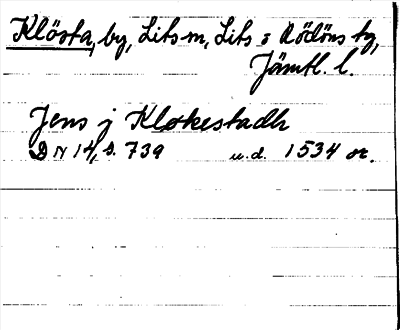 Klösta, by, Lits m, Lits o Rödöns tg,
Jämtl. l.
Jens j Kløkestadh
DN 14, s. 739 u.d. 1534 or.